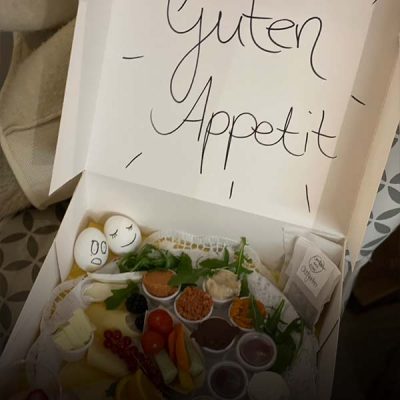 Guten
Appetit